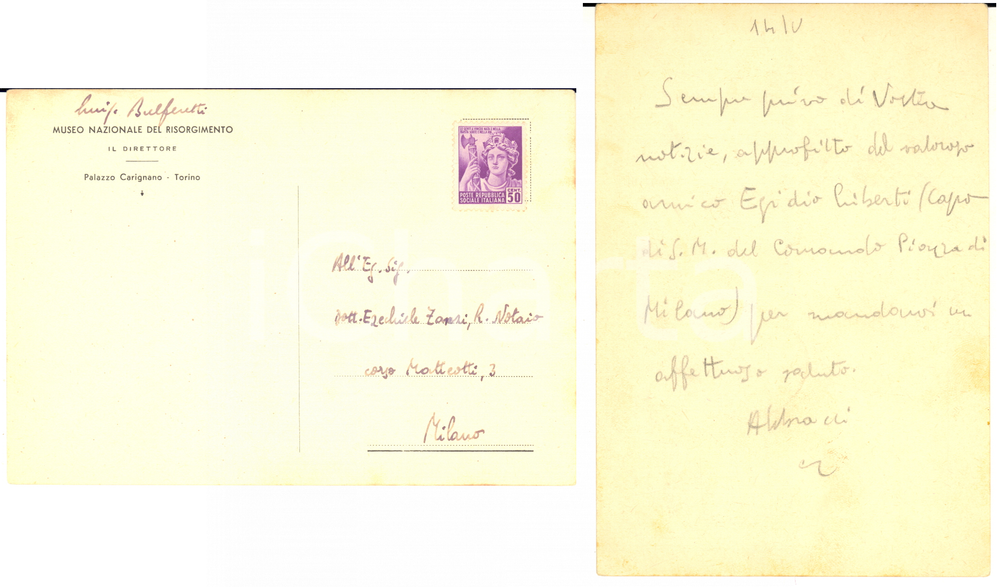 Luigi Bulferetti
MUSEO NAZIONALE DEL RISORGIMENTO
IL DIRETTORE
Palazzo Carignano - Torino
POSTE REPUBBLICA
SOCIALE ITALIANA
CENT. 50
All'Eg. Sig.
dott. Ezechiele Zanzi, R. Notaio
corso Matteotti, 3
Milano
14/V
Sempre privo di Vostre
notizie, approfitto del valoroso
amico Egidio Liberti (Capo
di S. M. del Comando Piazza di
Milano) per mandarvi un
affettuoso saluto.
Abbracci
iCharta